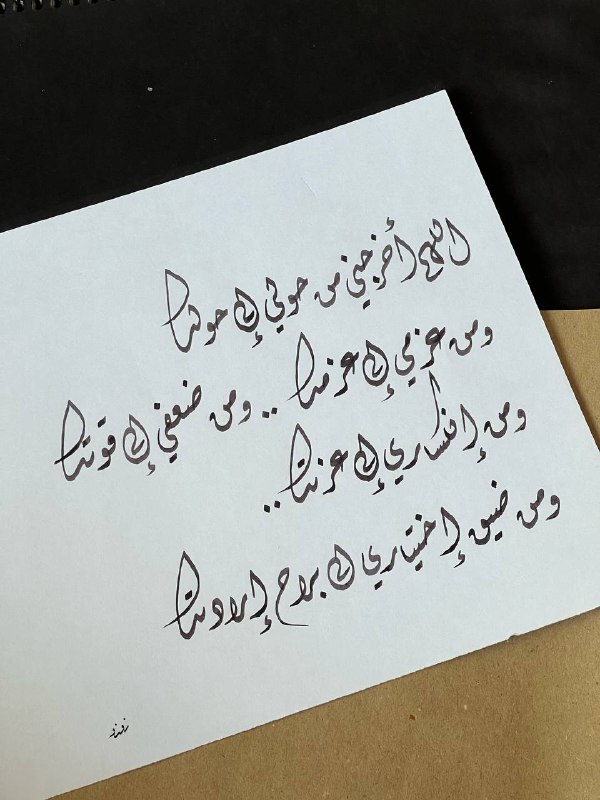 اللهم أخرجني من حولي إلى حولك
ومن عزمي إلى عزمك .. ومن ضعفي إلى قوتك
ومن إنكساري إلى عزتك ..
ومن ضيق إختياري إلى براح إرادتك